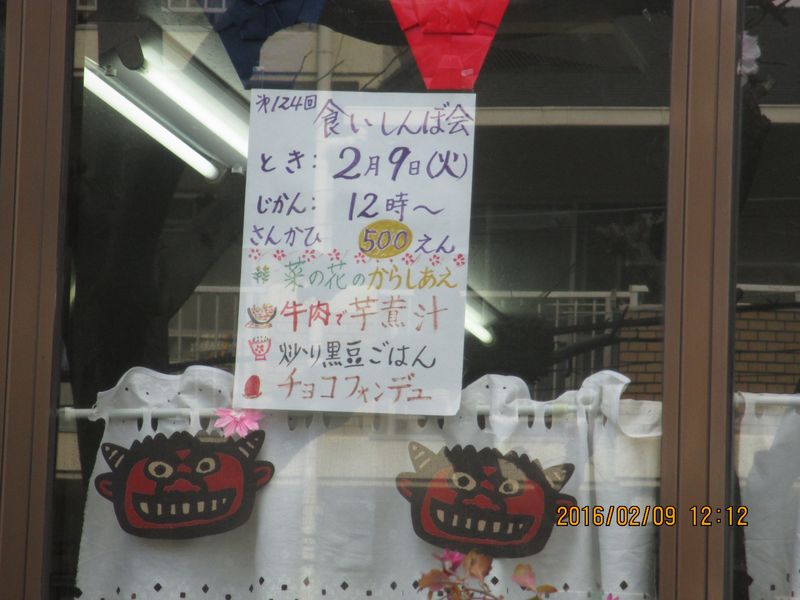 第124回
食いしんぼ会
とき: 2月9日(火)
じかん: 12時～
さんかひ 500えん
菜の花のからしあえ
牛肉で芋煮汁
炒り黒豆ごはん
チョコフォンデュ
2016/02/09 12:12